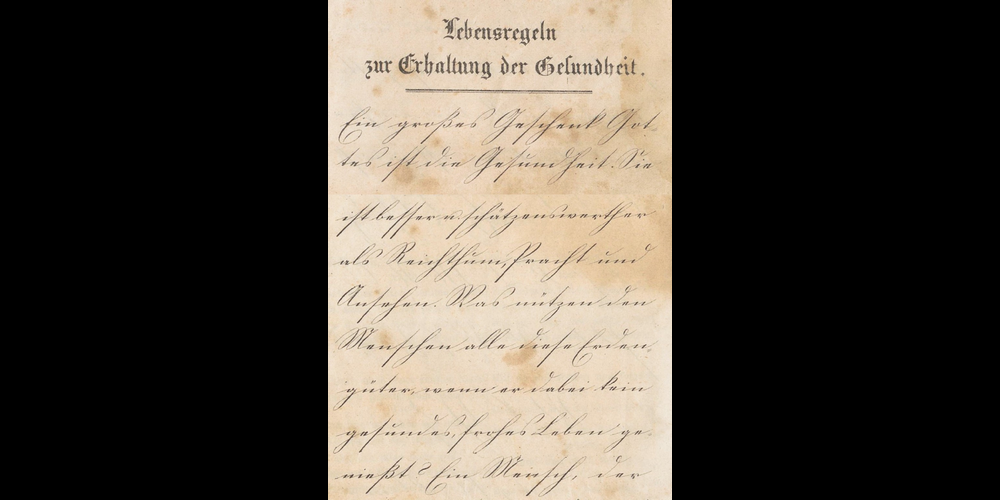 Lebensregeln
zur Erhaltung der Gesundheit.
Ein großes Geschenk Got-
tes ist die Gesundheit. Sie
ist besser u. schätzenswerther
als Reichthum, Pracht und
Ansehen. Was nützen den
Menschen alle diese Erden-
güter, wenn er dabei kein
gesundes, frohes Leben ge-
nießt? Ein Mensch, der